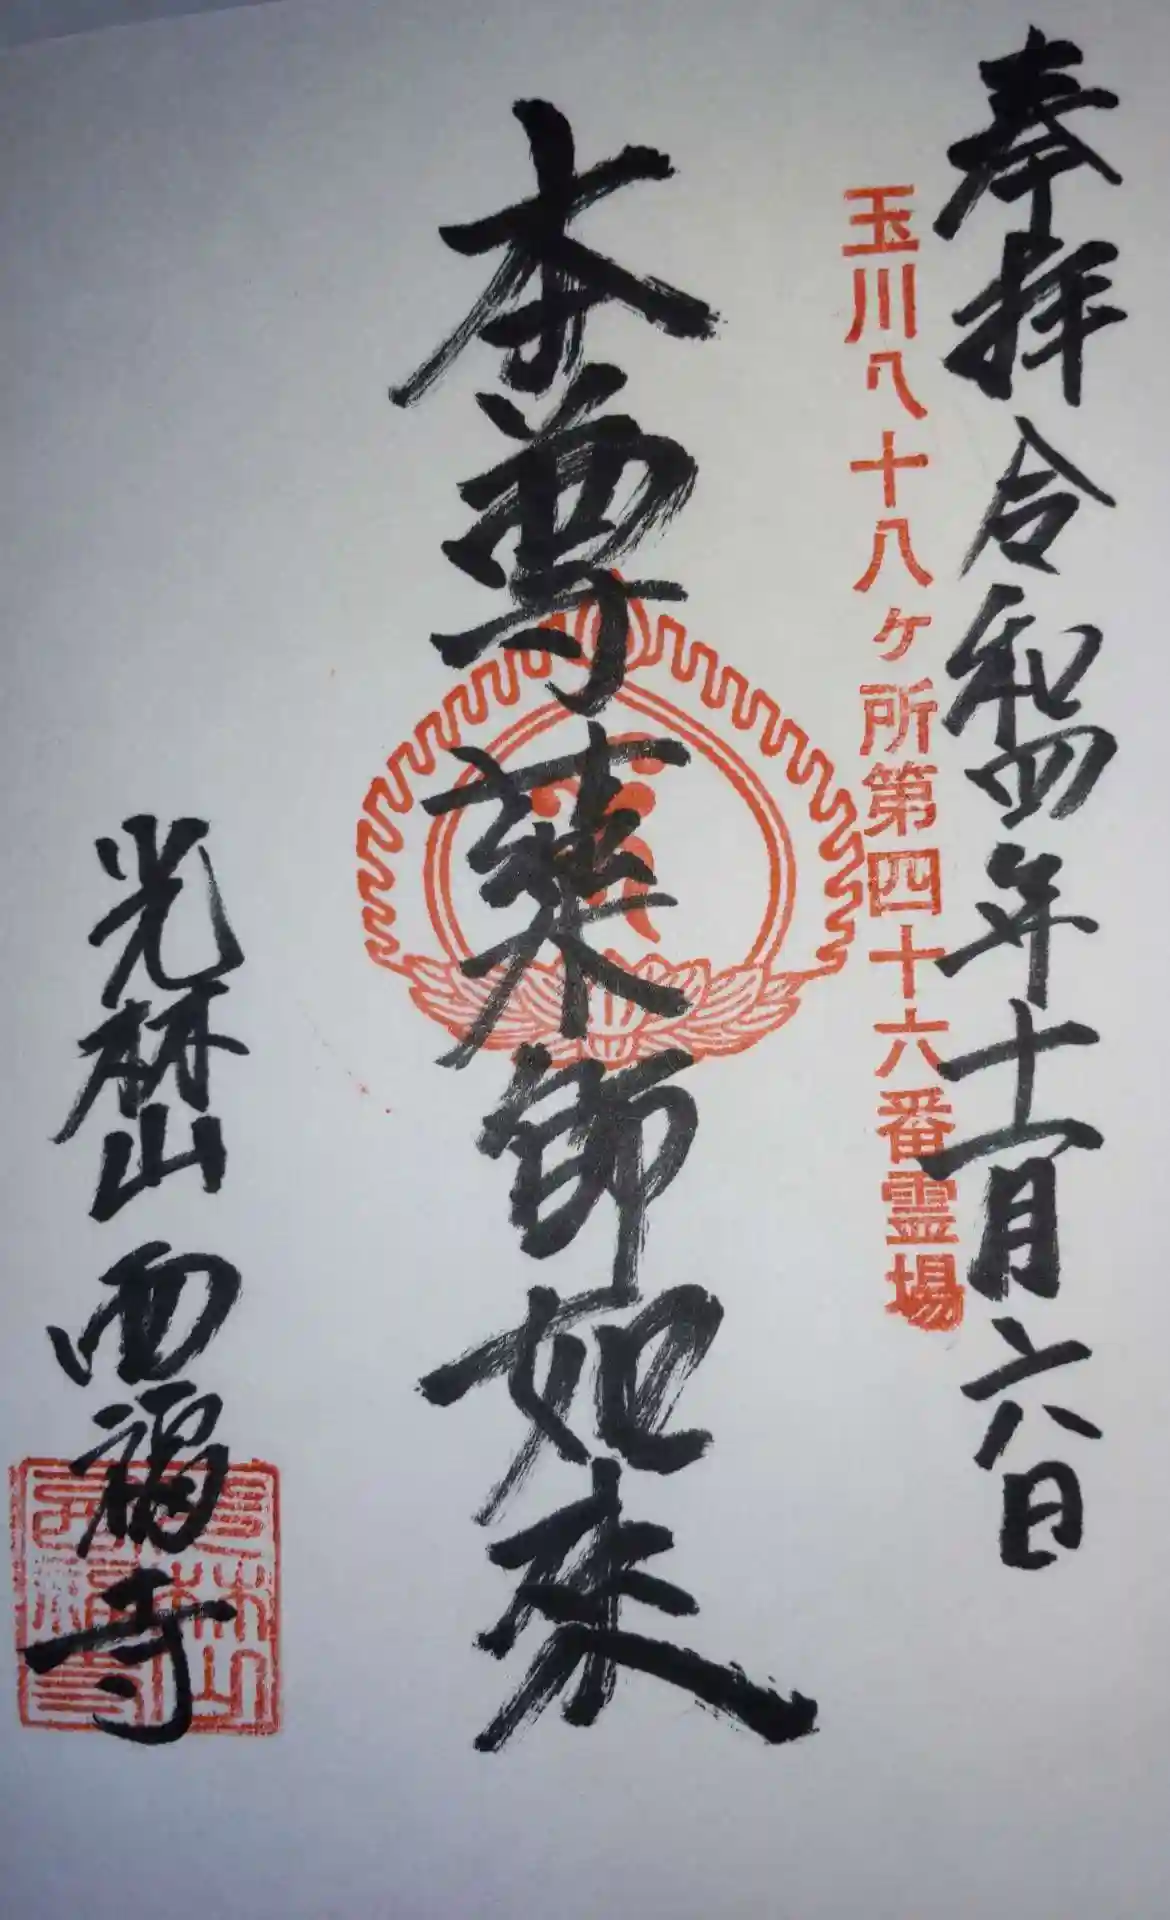 奉拝 令和四年十一月六日
玉川八十八ヶ所第四十六番霊場
本尊薬師如来
光林山 西福寺
光林山
西福寺